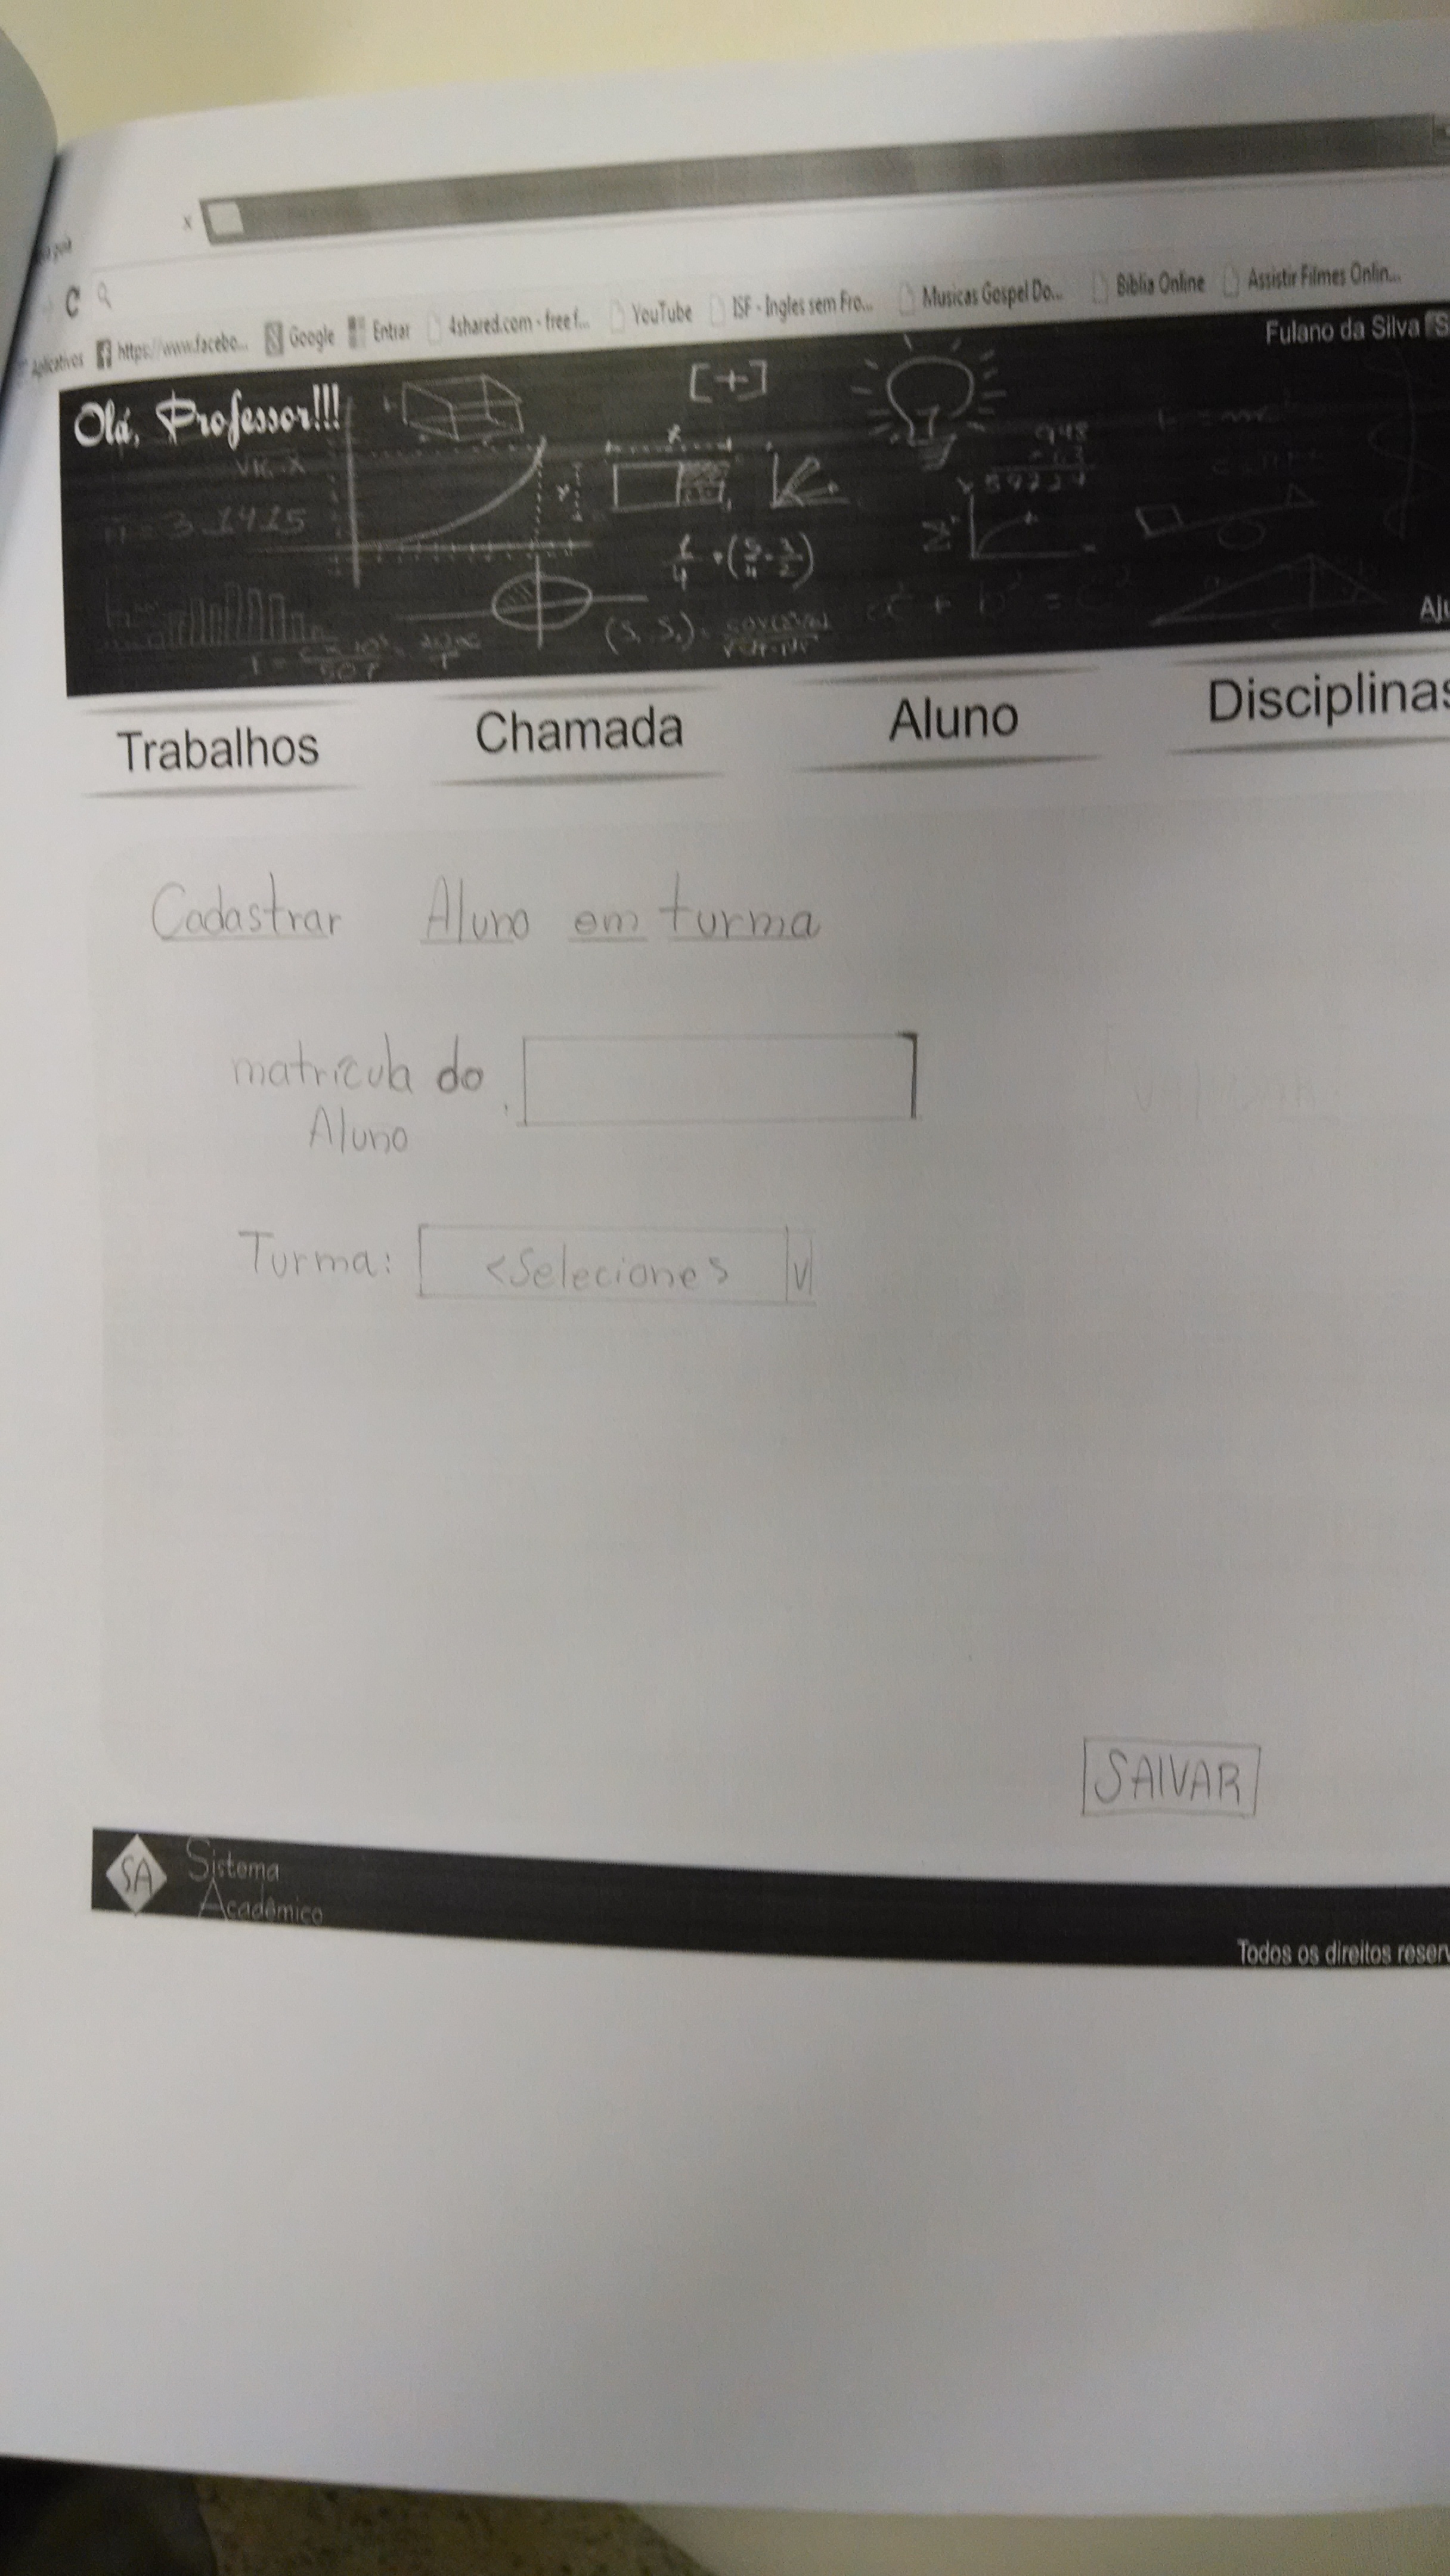 x
C
Aplicativos https://www.facebo... Google Entrar 4shared.com - free f... YouTube ISF - Ingles sem Fro... Musicas Gospel Do... Biblia Online Assistir Filmes Onlin...
Fulano da Silva
Olá, Professor!!!
[+]
π = 3.1415
Trabalhos Chamada Aluno Disciplinas
Cadastrar Aluno em turma
matrícula do
Aluno
Turma: <Selecione> V
SALVAR
SA Sistema
Acadêmico
Todos os direitos reserv